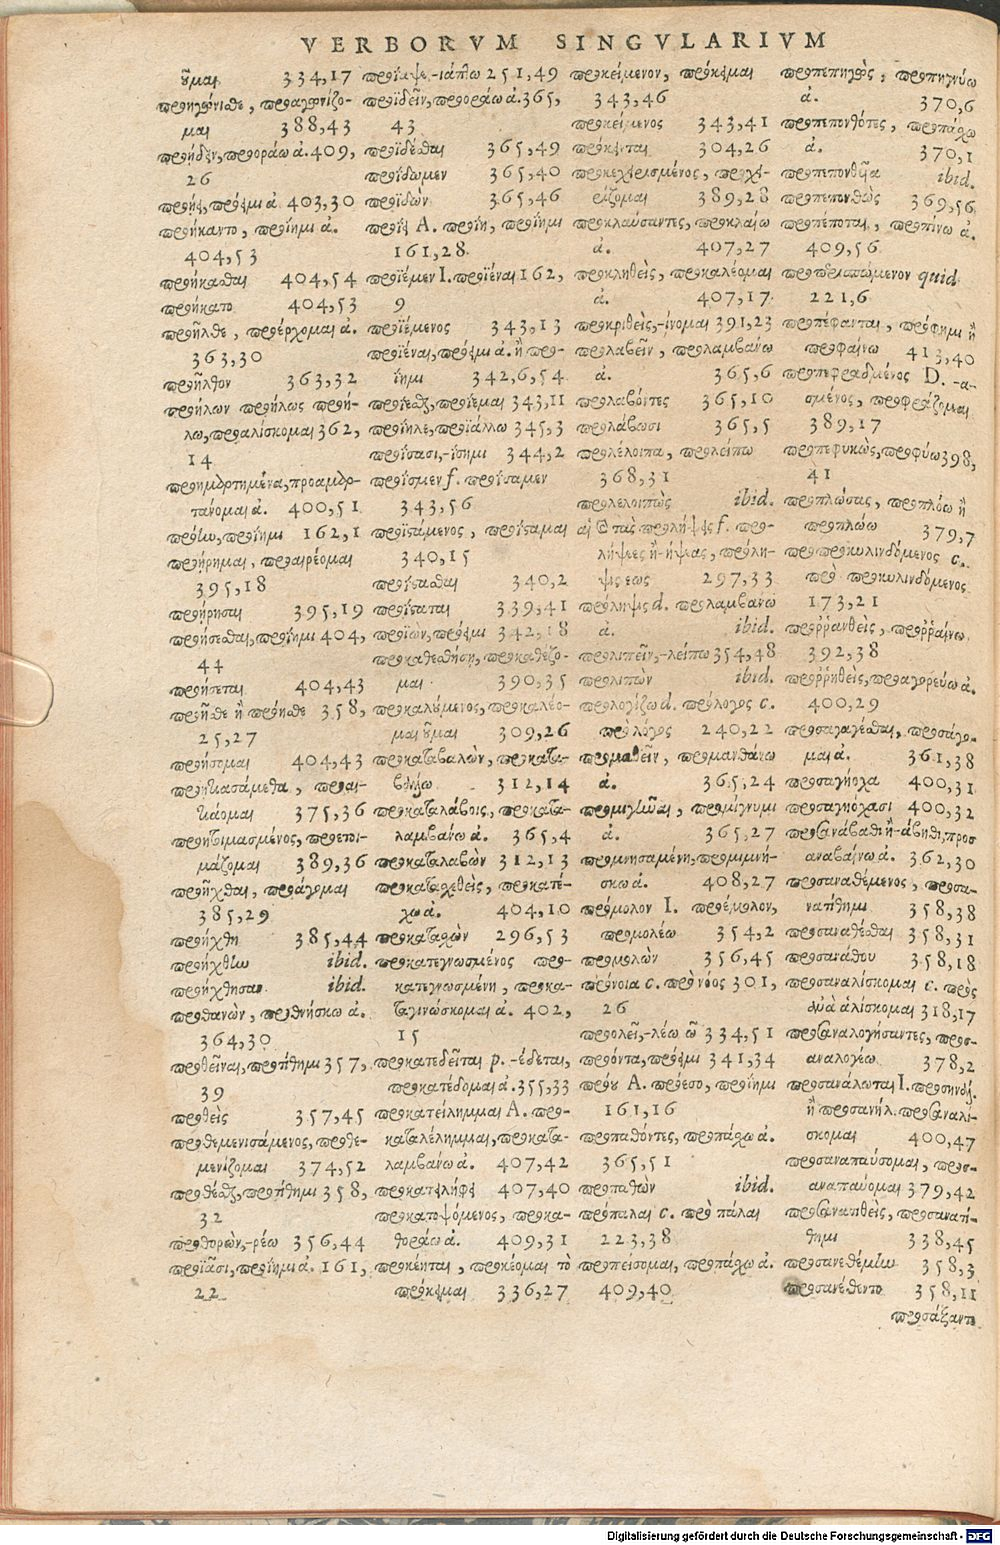 VERBORVM SINGVLARIVM
οῦμαι 334,17
προηγώνισθε, προαγωνίζο-
μαι 388,43
προῄδειν, προοράω ἀ. 409,
26
προῄει, πρόειμι ἀ. 403,30
προήκαντο, προΐημι ἀ.
404,53
προήκασθαι 404,54
προήκατο 404,53
προῆλθε, προέρχομαι ἀ.
363,30
προῆλθον 363,32
προήλων προήλως προή-
λω, προαλίσκομαι 362,
14
προημαρτημένα, προαμαρ-
τάνομαι ἀ. 400,51
προΐημι 162,1
προήρημαι, προαιρέομαι
395,18
προήρησαι 395,19
προήσεσθαι, προΐημι 404,
44
προήσεται 404,43
προῆσθε ἢ πρόησθε 358,
25,27
προήσομαι 404,43
προῃτιασάμεθα, προαι-
τιάομαι 375,36
προητοιμασμένος, προετοι-
μάζομαι 389,36
προῆχθαι, προάγομαι
385,29
προήχθη 385,44
προήχθην ibid.
προήχθησαν ibid.
προθανών, προθνήσκω ἀ.
364,30
προθεῖναι, προτίθημι 357,
39
προθείς 357,45
προθεμενισάμενος, προθε-
μενίζομαι 374,52
προθέσθαι, προτίθημι 358,
32
προθορὼν, -ρέω 356,44
προϊᾶσι, προΐημι ἀ. 161,
22
προΐαψε, -ιάπτω 251,49
προϊδεῖν, προοράω ἀ. 365,
43
προϊδέσθαι 365,49
προΐδωμεν 365,40
προϊδών 365,46
προΐει Α. προΐη, προΐημι
161,28
προΐεμεν Ι. προϊέναι 162,
9
προϊέμενος 343,13
προϊέναι, πρόειμι ἀ. ἢ προ-
ΐημι 342,6,54
προΐεσθαι, προΐεμαι 343,11
προΐηλε, προϊάλλω 345,3
προΐσασι, -ίσημι 344,2
προΐσμεν f. προΐσαμεν
343,56
προϊστάμενος, προΐσταμαι
340,15
προΐστασθαι 340,2
προΐσταται 339,41
προϊών, πρόειμι 342,18
προκαθεσθήσῃ, προκαθέζο-
μαι 390,35
προκαλούμενος, προκαλέο-
μαι οῦμαι 309,26
προκαταβαλών, προκατα-
βάλλω 312,14
προκαταλάβοις, προκατα-
λαμβάνω ἀ. 365,4
προκαταλαβών 312,13
προκατασχεθείς, προκατέ-
χω ἀ. 404,10
προκατασχών 296,53
προκατεγνωσμένος προ-
κατεγνωσμένη, προκα-
ταγινώσκομαι ἀ. 402,
15
προκατεδεῖται p. -έδεται,
προκατέδομαι ἀ. 355,33
προκατείλημμαι Α. προ-
καταλέλημμαι, προκατα-
λαμβάνω ἀ. 407,42
προκατείληφε 407,40
προκατοψόμενος, προκα-
θοράω ἀ. 409,31
προκέηται, προκέομαι τὸ
πρόκειμαι 336,27
προκείμενον, πρόκειμαι
343,46
προκείμενος 343,41
πρόκειται 304,26
προκεχειρισμένος, προχει-
ρίζομαι 389,28
προκλαύσαντες, προκλαίω
ἀ. 407,27
προκληθείς, προκαλέομαι
ἀ. 407,17
προκριθείς, -ίνομαι 391,23
προλαβεῖν, προλαμβάνω
ἀ. 365,6
προλαβόντες 365,10
προλάβωσι 365,5
προλέλοιπα, προλείπω
368,31
προλελοιπώς ibid.
τὰς προλήψεις f. προ-
λήψιες ἢ -ήψεας, πρόλη-
ψις εως 297,33
πρόληψις d. προλαμβάνω
ἀ. ibid.
προλιπεῖν, -λείπω 354,48
προλιπών ibid.
προλογίζω d. πρόλογος c.
πρὸ λόγος 240,22
προμαθεῖν, προμανθάνω
ἀ. 365,24
προμιγῆναι, προμίγνυμι
ἀ. 365,27
προμνησαμένη, προμιμνή-
σκω ἀ. 408,27
πρόμολον Ι. προέμολον,
προμολέω 354,2
προμολών 356,45
πρόνοια c. πρὸ νόος 301,
26
προολεῖ, -λέω ῶ 334,51
προόντα, πρόειμι 341,34
πρόου Α. πρόεσο, προΐημι
161,16
προπαθόντες, προπάσχω ἀ.
365,51
προπαθών ibid.
πρόπαλαι c. πρὸ πάλαι
223,38
προπείσομαι, προπάσχω ἀ.
409,40
προπεπηγώς, προπηγνύω
ἀ. 370,6
προπεπονθότες, προπάσχω
ἀ. 370,1
προπεπονθυῖα ibid.
προπεπονθώς 369,56
προπέποται, προπίνω ἀ.
409,56
quid
221,6
προπέφανται, πρόφημι ἢ
προφαίνω 413,40
προπεφραδμένος D. -α-
σμένος, προφράζομαι
389,17
προπεφυκώς, προφύω 398,
41
προπλώσας, προπλόω ἢ
προπλώω 379,7
προπροκυλινδόμενος c.
πρὸ προκυλινδόμενος
173,21
προῤῥανθείς, προῤῥαίνω
392,38
προῤῥηθείς, προαγορεύω ἀ.
400,29
προσαγαγέσθαι, προσάγο-
μαι ἀ. 361,38
προσαγήοχα 400,31
προσαγηόχασι 400,32
προσανάβαθι ἢ -άβηθι, προσ
αναβαίνω ἀ. 362,30
προσαναθέμενος, προσα-
νατίθημι 358,38
προσαναθέσθαι 358,31
προσανάθου 358,18
προσαναλίσκομαι c. πρὸς
ἀνὰ ἁλίσκομαι 318,17
προσαναλογήσαντες, προσ-
αναλογέω 378,2
προσανάλωται Ι.
ἢ προσανήλ. προσαναλί-
σκομαι 400,47
προσαναπαύσομαι, προσ-
αναπαύομαι 379,42
προσανατιθείς, προσανατί-
θημι 338,45
προσανεθέμην 358,3
προσανέθεντο 358,11
προσάξαντι
Digitalisierung gefördert durch die Deutsche Forschungsgemeinschaft - DFG